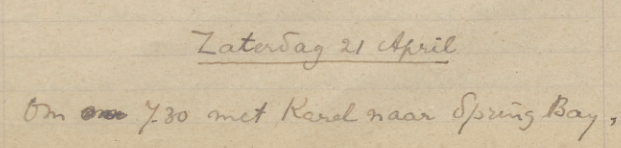 Zaterdag 21 April
Om 7.30 met Karel naar Spring Bay,